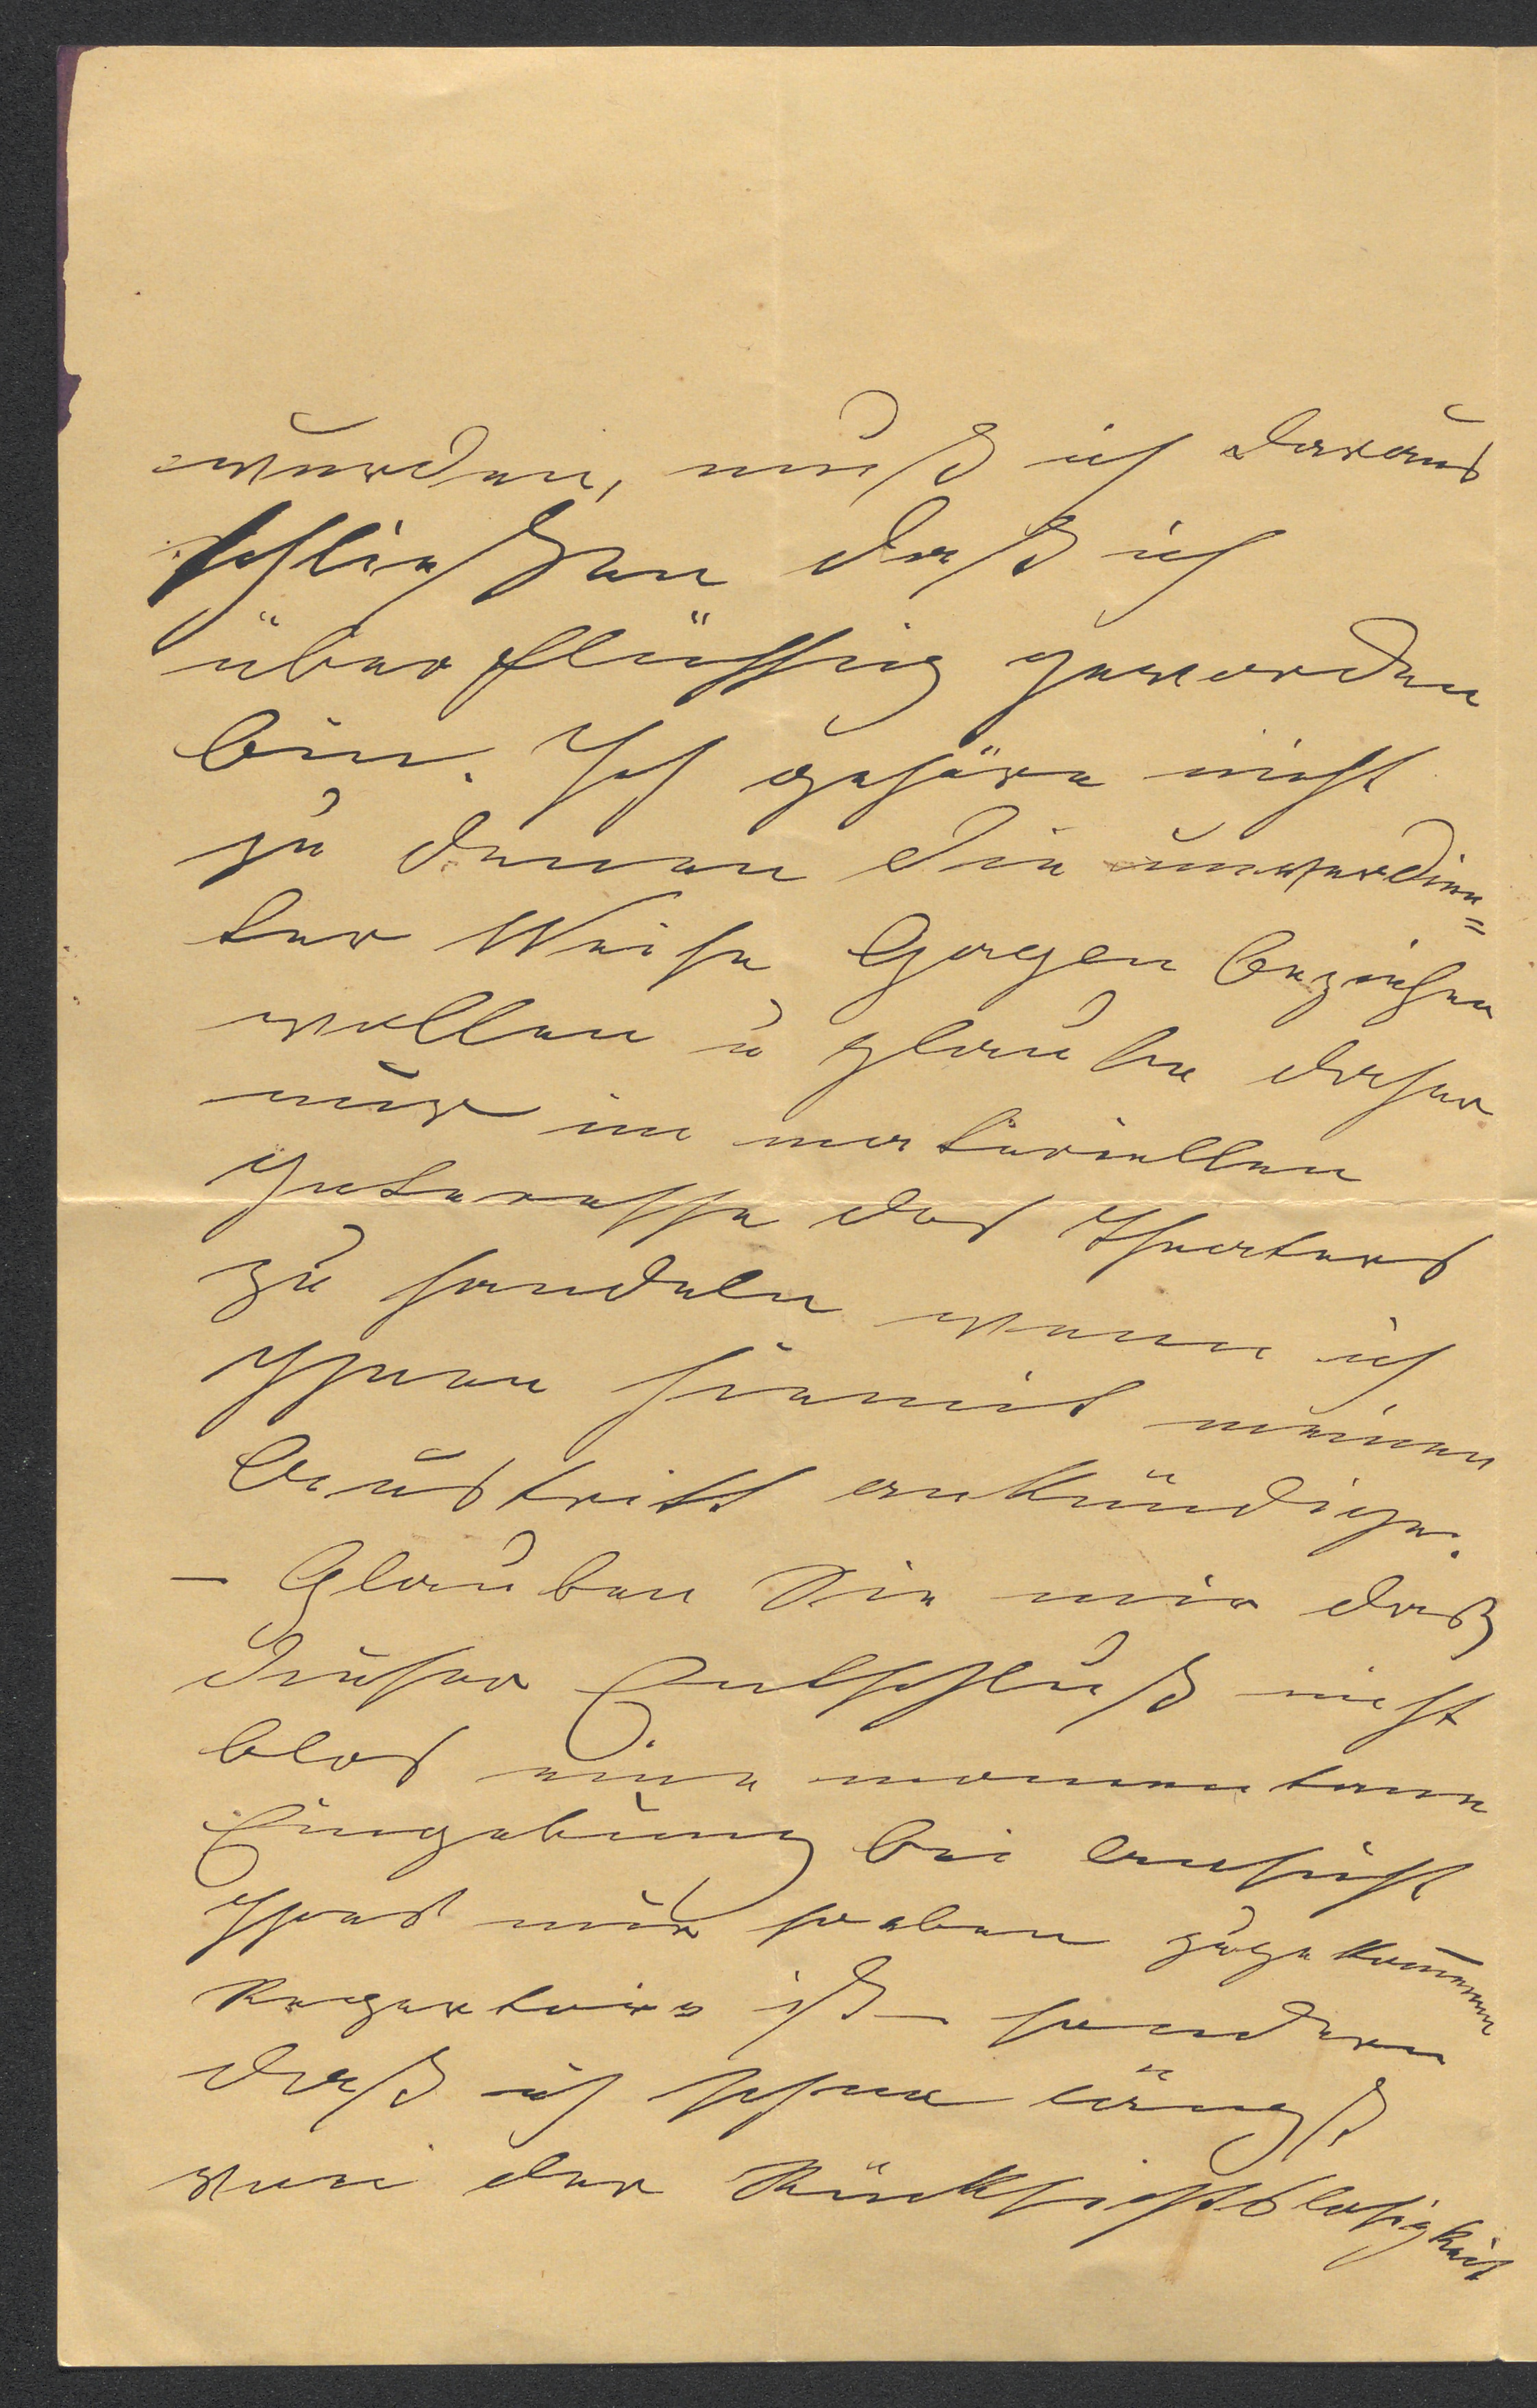 wurden, muß ich daraus
schließen daß ich
überflüssig geworden
bin. Ich gehöre nicht
zu denen die unverdien=
ter Weise Gagen beziehen
wollen u glaube daher
nur im materiellen
Interesse des Theaters
zu handeln wenn ich
Ihnen hiemit meinen
Austritt ankündige.
– Glauben Sie mir daß
dieser Entschluß nicht
blos eine momentane
Eingebung bei Ansicht
Ihres mir soeben zugekom̅enen
Repertoirs ist – sondern
daß ich schon längst
von der Rücksichtslosigkeit